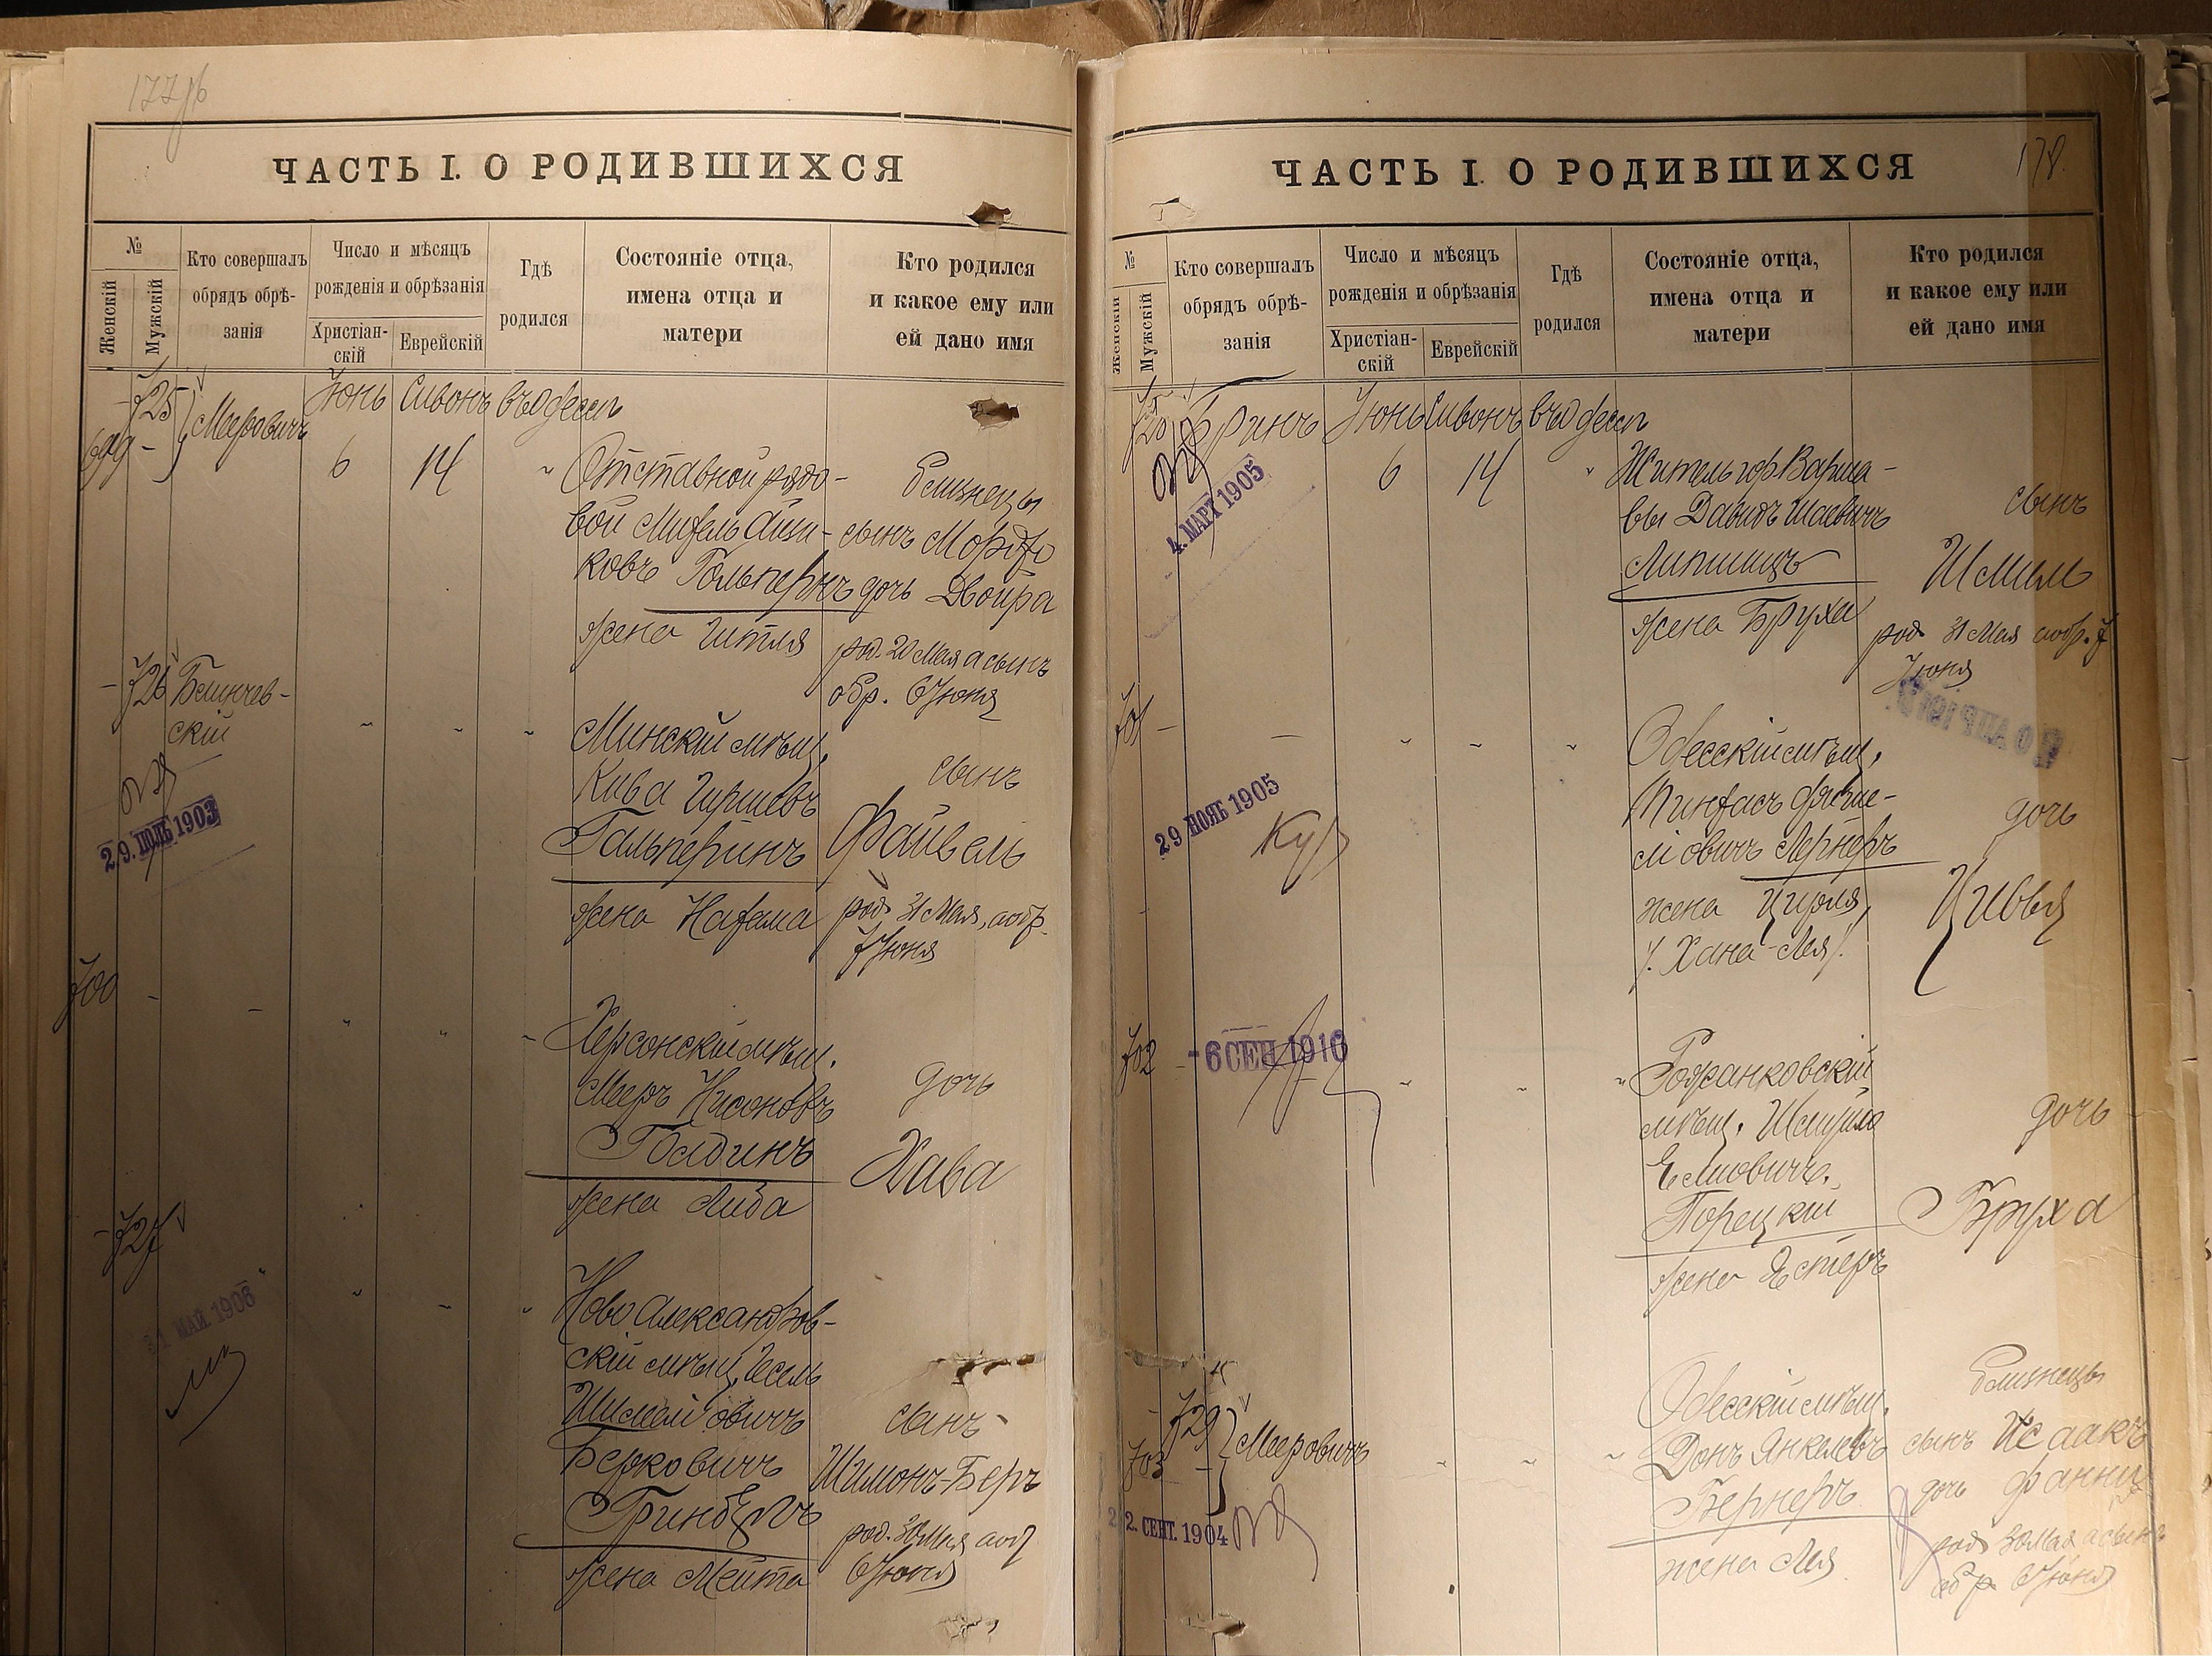 ЧАСТЬ I. О РОДИВШИХСЯ
№
Женскій
Мужскій
Кто совершалъ
обрядъ обрѣ-
занія
Число и мѣсяцъ
рожденія и обрѣзанія
Христіан-
скій
Еврейскій
Гдѣ
родился
Состояніе отца,
имена отца и
матери
Кто родился
и какое ему или
ей дано имя
725
699 -
Мееровичъ
Іюнь Сивонъ въ Одессѣ
6 14
Отставной рядо-
вой
ковъ Гольперинъ
жена Гитля
близнецы
сынъ
дочь Двойра
род. 20 Мая а сынъ
обр. 6 Іюня
- 726
Блинчев-
скій
29. ІЮЛЬ 1903
Минскій мѣщ.
Кива Гиршевъ
Гальперинъ
жена Нахама
сынъ
Файвель
род. 31 Мая, а обр.
7 Іюня
700 -
Херсонскій мѣщ.
Мееръ Нисоновъ
Голдинъ
жена Либа
дочь
Хава
- 727
31 МАЙ 1908
Ново Александров-
скій мѣщ.
Шимелiовичъ
Берковичъ
Гринбергъ
жена Мейта
сынъ
Шимонъ-Беръ
род. 30 Мая а обр.
6 Іюня
178.
ЧАСТЬ I. О РОДИВШИХСЯ
№
Женскій
Мужскій
Кто совершалъ
обрядъ обрѣ-
занія
Число и мѣсяцъ
рожденія и обрѣзанія
Христіан-
скій
Еврейскій
Гдѣ
родился
Состояніе отца,
имена отца и
матери
Кто родился
и какое ему или
ей дано имя
Гринъ
Іюнь Сивонъ въ Одессѣ
6 14
4. МАРТ 1905
Житель гор. Варша-
вы Давидъ Шаевичъ
Липшицъ
жена Бруха
сынъ
Шмиль
род 31 Мая а обр. 7
Іюня
701 -
29 НОЯБ 1905
Одесскій мѣщ.
Пинхасъ
Лернеръ
жена Цирля
/. Хана-Лея/.
дочь
Цивья
702 -
- 6 СЕН 1916
Рожанковскій
мѣщ. Шмуйло
Елиовичъ
Порецкій
жена Эстеръ
дочь
Бруха
729
703 -
Мееровичъ
22. СЕНТ. 1904
Одесскій мѣщ.
Донъ Янкелевъ
Бернеръ
жена Лея
близнецы
сынъ Исаакъ
дочь Фанни
род 30 Мая а сынъ
обр 6 Іюня